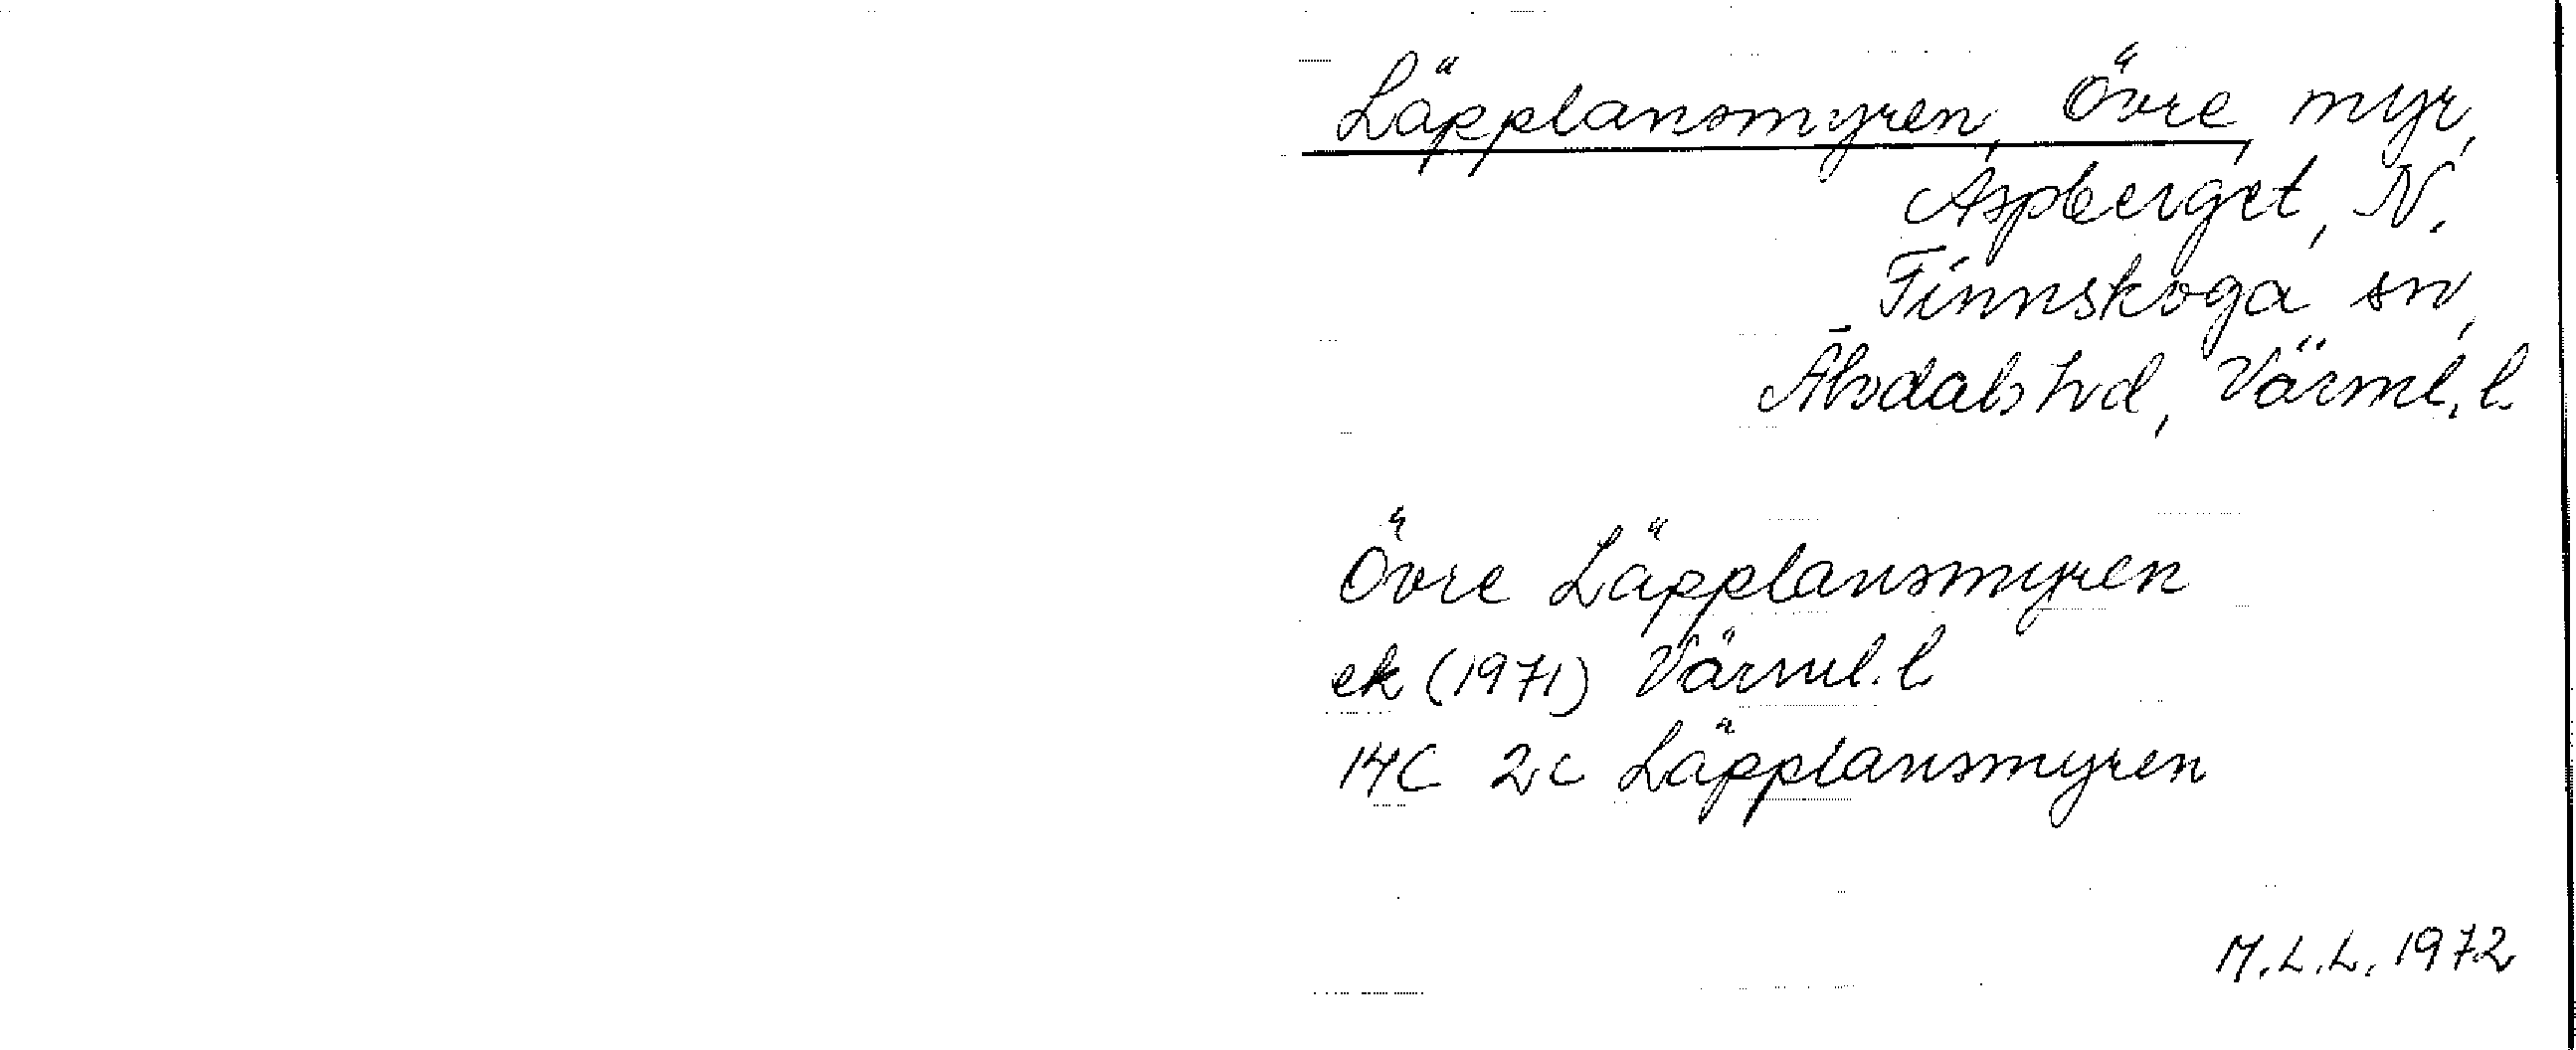 Läpplansmyren, Övre, myr,
Aspberget, N.
Finnskoga sn,
Älvdals hd, Värml. l.
Övre Läpplansmyren
ek (1971) Värml. l
14C 2c Läpplansmyren
M.L.L. 1972